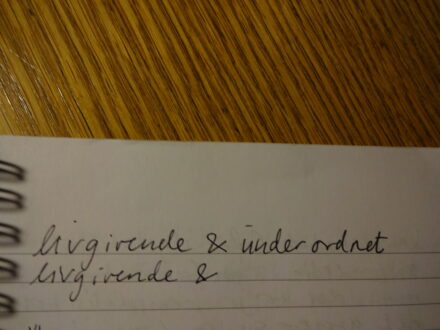 livgivende & underordnet
livgivende &